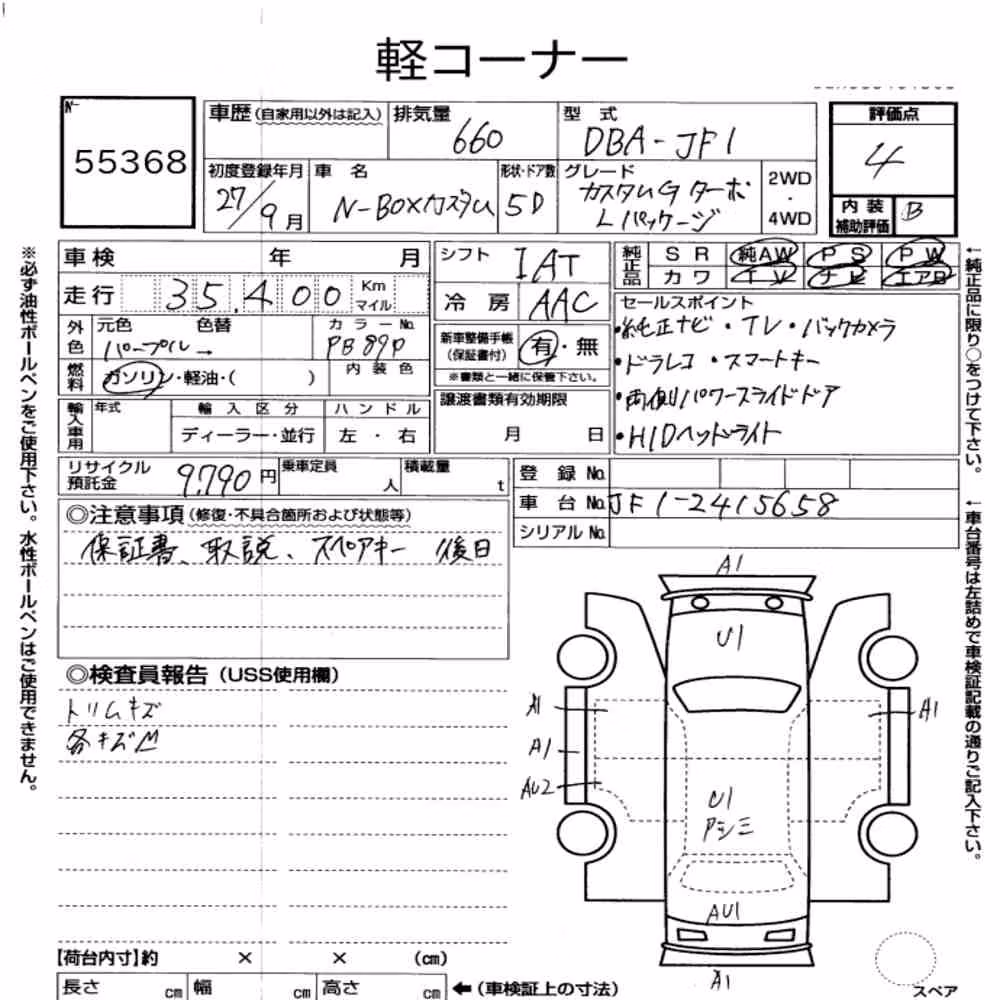 軽コーナー
No 55368
車歴(自家用以外は記入) 排気量 660 型式 DBA-JF1
評価点 4
初度登録年月 27/9月 車名 N-BOXカスタム 形状・ドア数 5D グレード カスタムG ターボ Lパッケージ 2WD・4WD
内装補助評価 B
車検 年 月
シフト IAT
純正品 SR 純AW PS PW
カワ TV ナビ エアB
走行 35,400 Km マイル
冷房 AAC
外色 元色 パープル→ 色替 カラーNo. PB89P
内装色
燃料 ガソリン・軽油・( )
新車整備手帳(保証書付) 有・無
※書類と一緒に保管下さい。
セールスポイント
・純正ナビ・TV・バックカメラ
・ドラレコ・スマートキー
・両側パワースライドドア
・HIDヘッドライト
輸入車用 年式 輸入区分 ハンドル
ディーラー・並行 左・右
譲渡書類有効期限
月 日
リサイクル預託金 9,790円 乗車定員 人 積載量 t
登録No.
車台No. JF1-2415658
シリアルNo.
◎注意事項(修復・不具合箇所および状態等)
保証書、取説、スペアキー 後日
◎検査員報告(USS使用欄)
トリムキズ
各キズ凹
A1
U1
A1
A1
A1
AU2
U1
アシミ
AU1
A1
スペア
【荷台内寸】約 × × (cm)
長さ cm 幅 cm 高さ cm ←(車検証上の寸法)
※必ず油性ボールペンをご使用下さい。水性ボールペンはご使用できません。
←純正品に限り○をつけて下さい。
←車台番号は左詰めで車検証記載の通りご記入下さい。